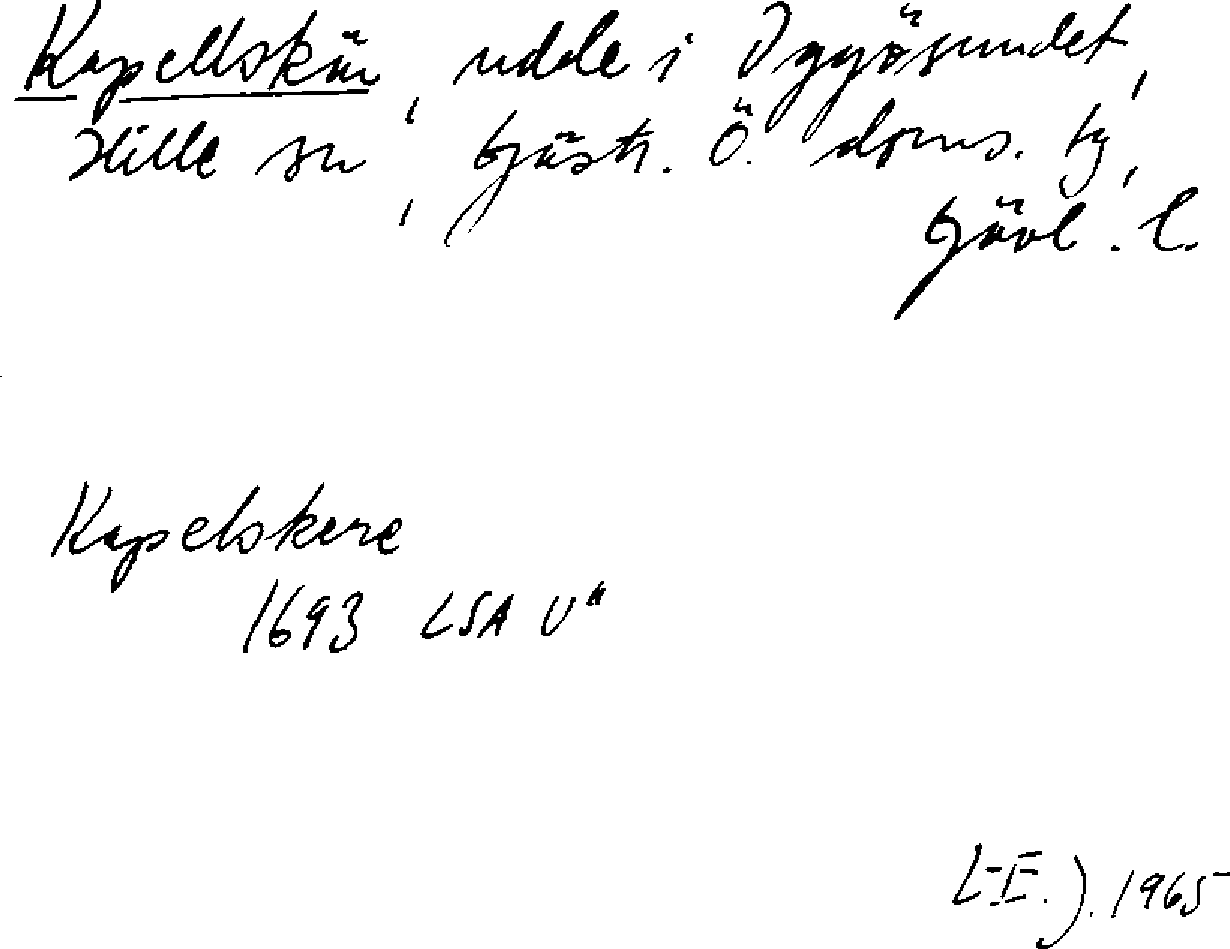 Kapellskär, udde i Iggösundet,
Hille sn, Gästr. Ö. doms. tg,
Gävl. l.
Kapelskere
1693 LSA U"
L-E. J. 1965